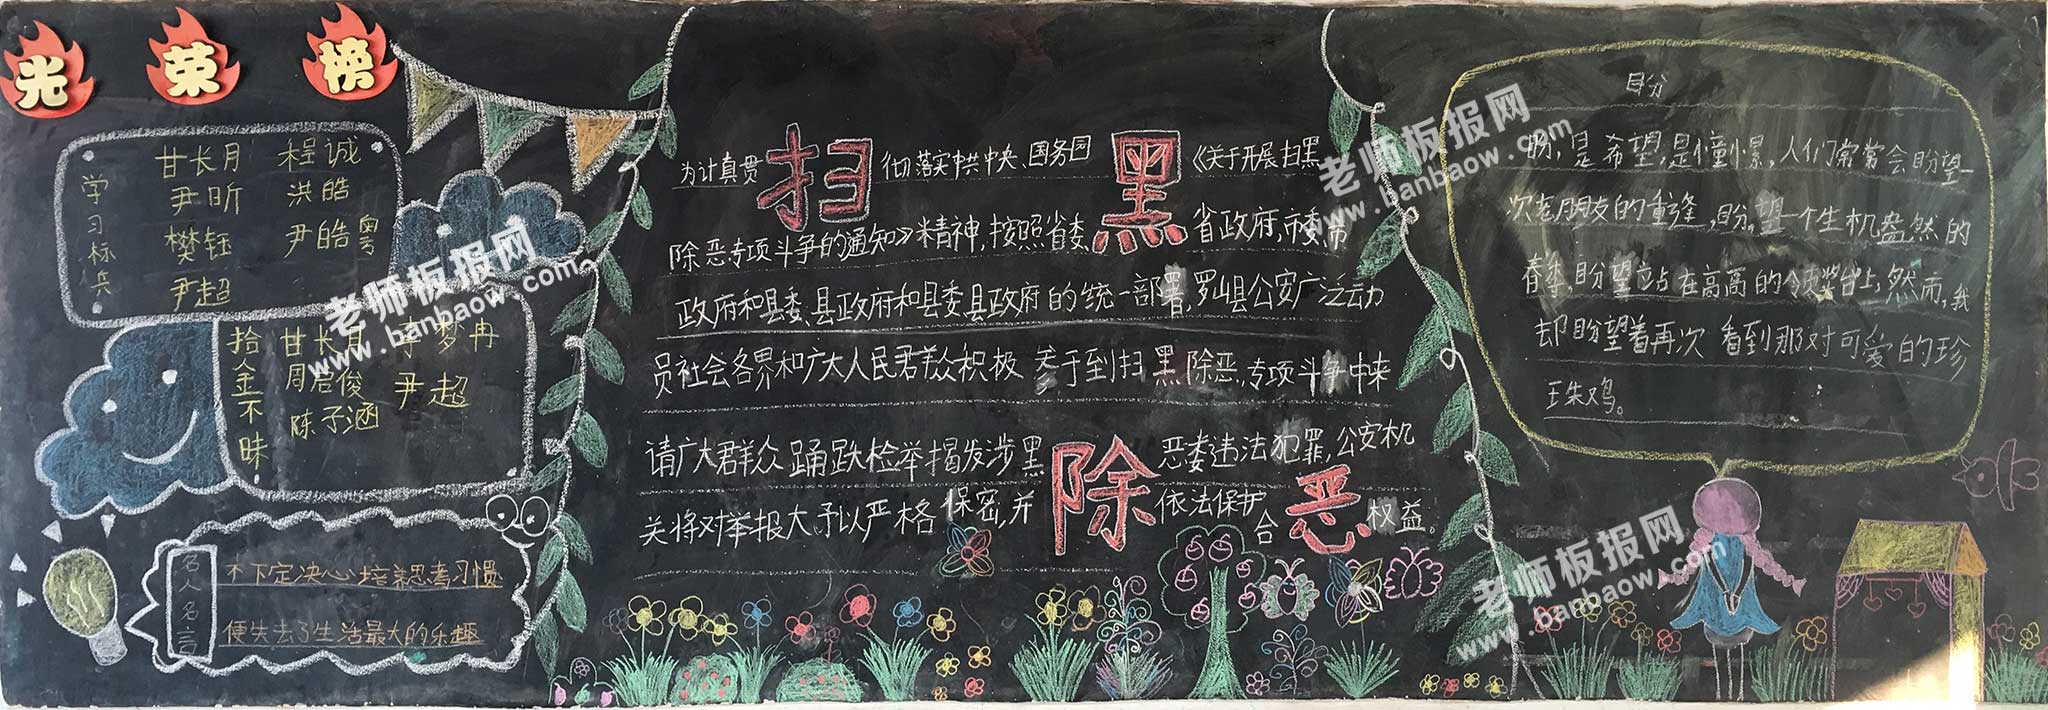 光荣榜
学习标兵
甘长月 程诚
尹昕 洪皓
樊钰 尹皓粤
尹超
拾金不昧
甘长月 李梦冉
周启俊 尹超
陈子涵
名人名言
不下定决心培养思考习惯
便失去了生活最大的乐趣
扫黑除恶
为计真贯彻落实中共中央、国务园《关于开展扫黑
除恶专项斗争的通知》精神,按照省委、省政府,市委、市
政府和县委、县政府和县委县政府的统一部署,罗山县公安广泛动
员社会各界和广大人民君羊众积极 参于到扫黑除恶,专项斗争中来
请广大群众踊跃检举揭发涉黑恶委违法犯罪,公安机
关将对举报大予以严格保密,并依法保护合权益。
盼
盼,是希望,是憧憬,人们常常会盼望一
次老朋友的重逢,盼望一个生机盎然的
春季,盼望站在高高的领奖台上,然而,我
却盼望着再次看到那对可爱的珍
珠鸡。
老师板报网
www.banbaow.com
老师板报网
www.banbaow.com
老师板报网
www.banbaow.com